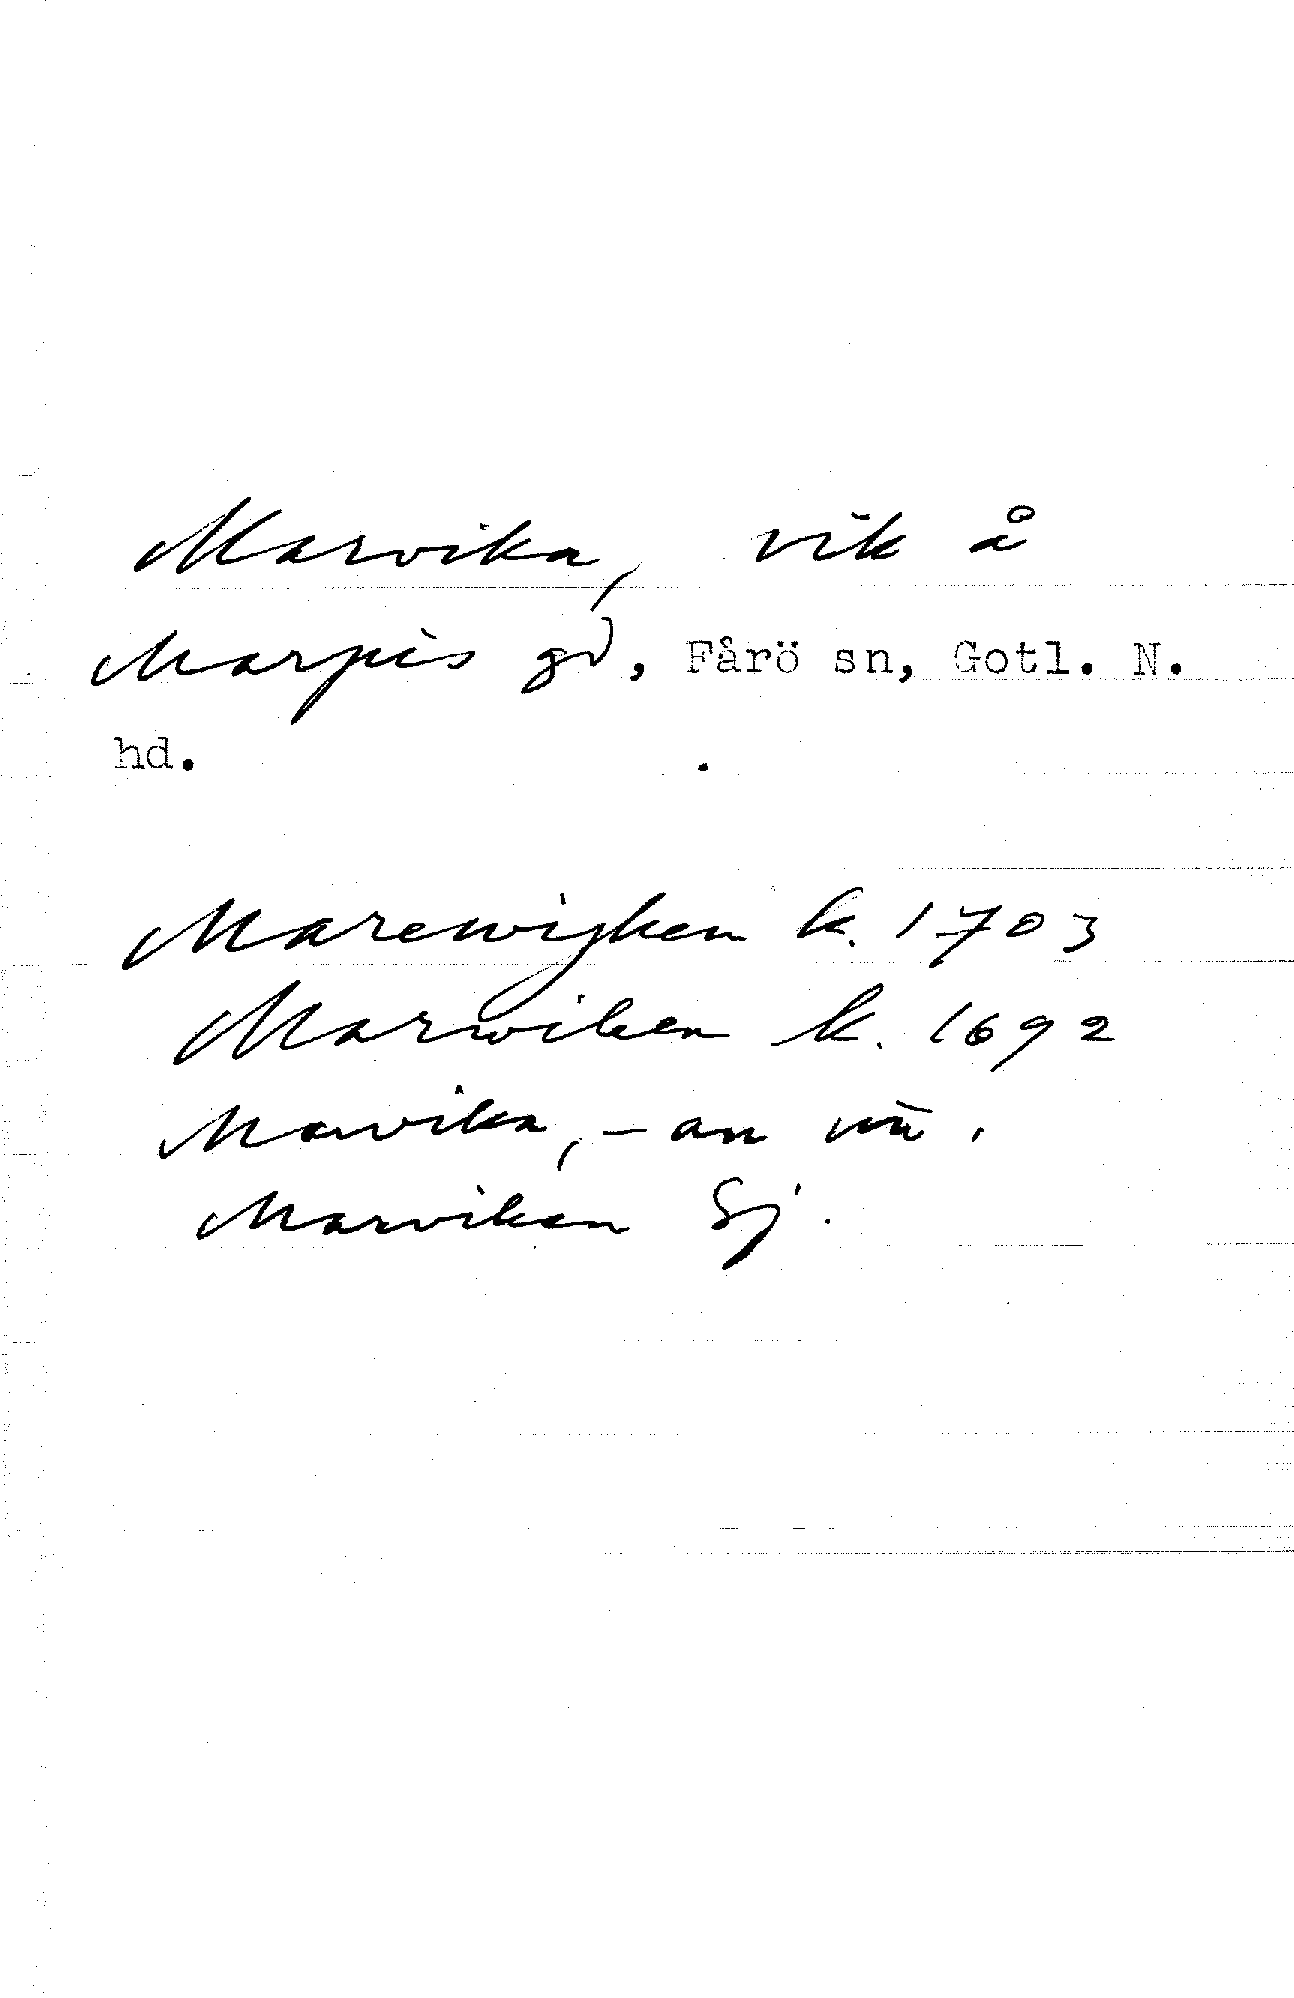 Marvika, vik å
Marpis gd, Fårö sn, Gotl. N.
hd.
Marewijken k. 1703
Marwiken k. 1692
Marvika, -an
Marviken Sj.